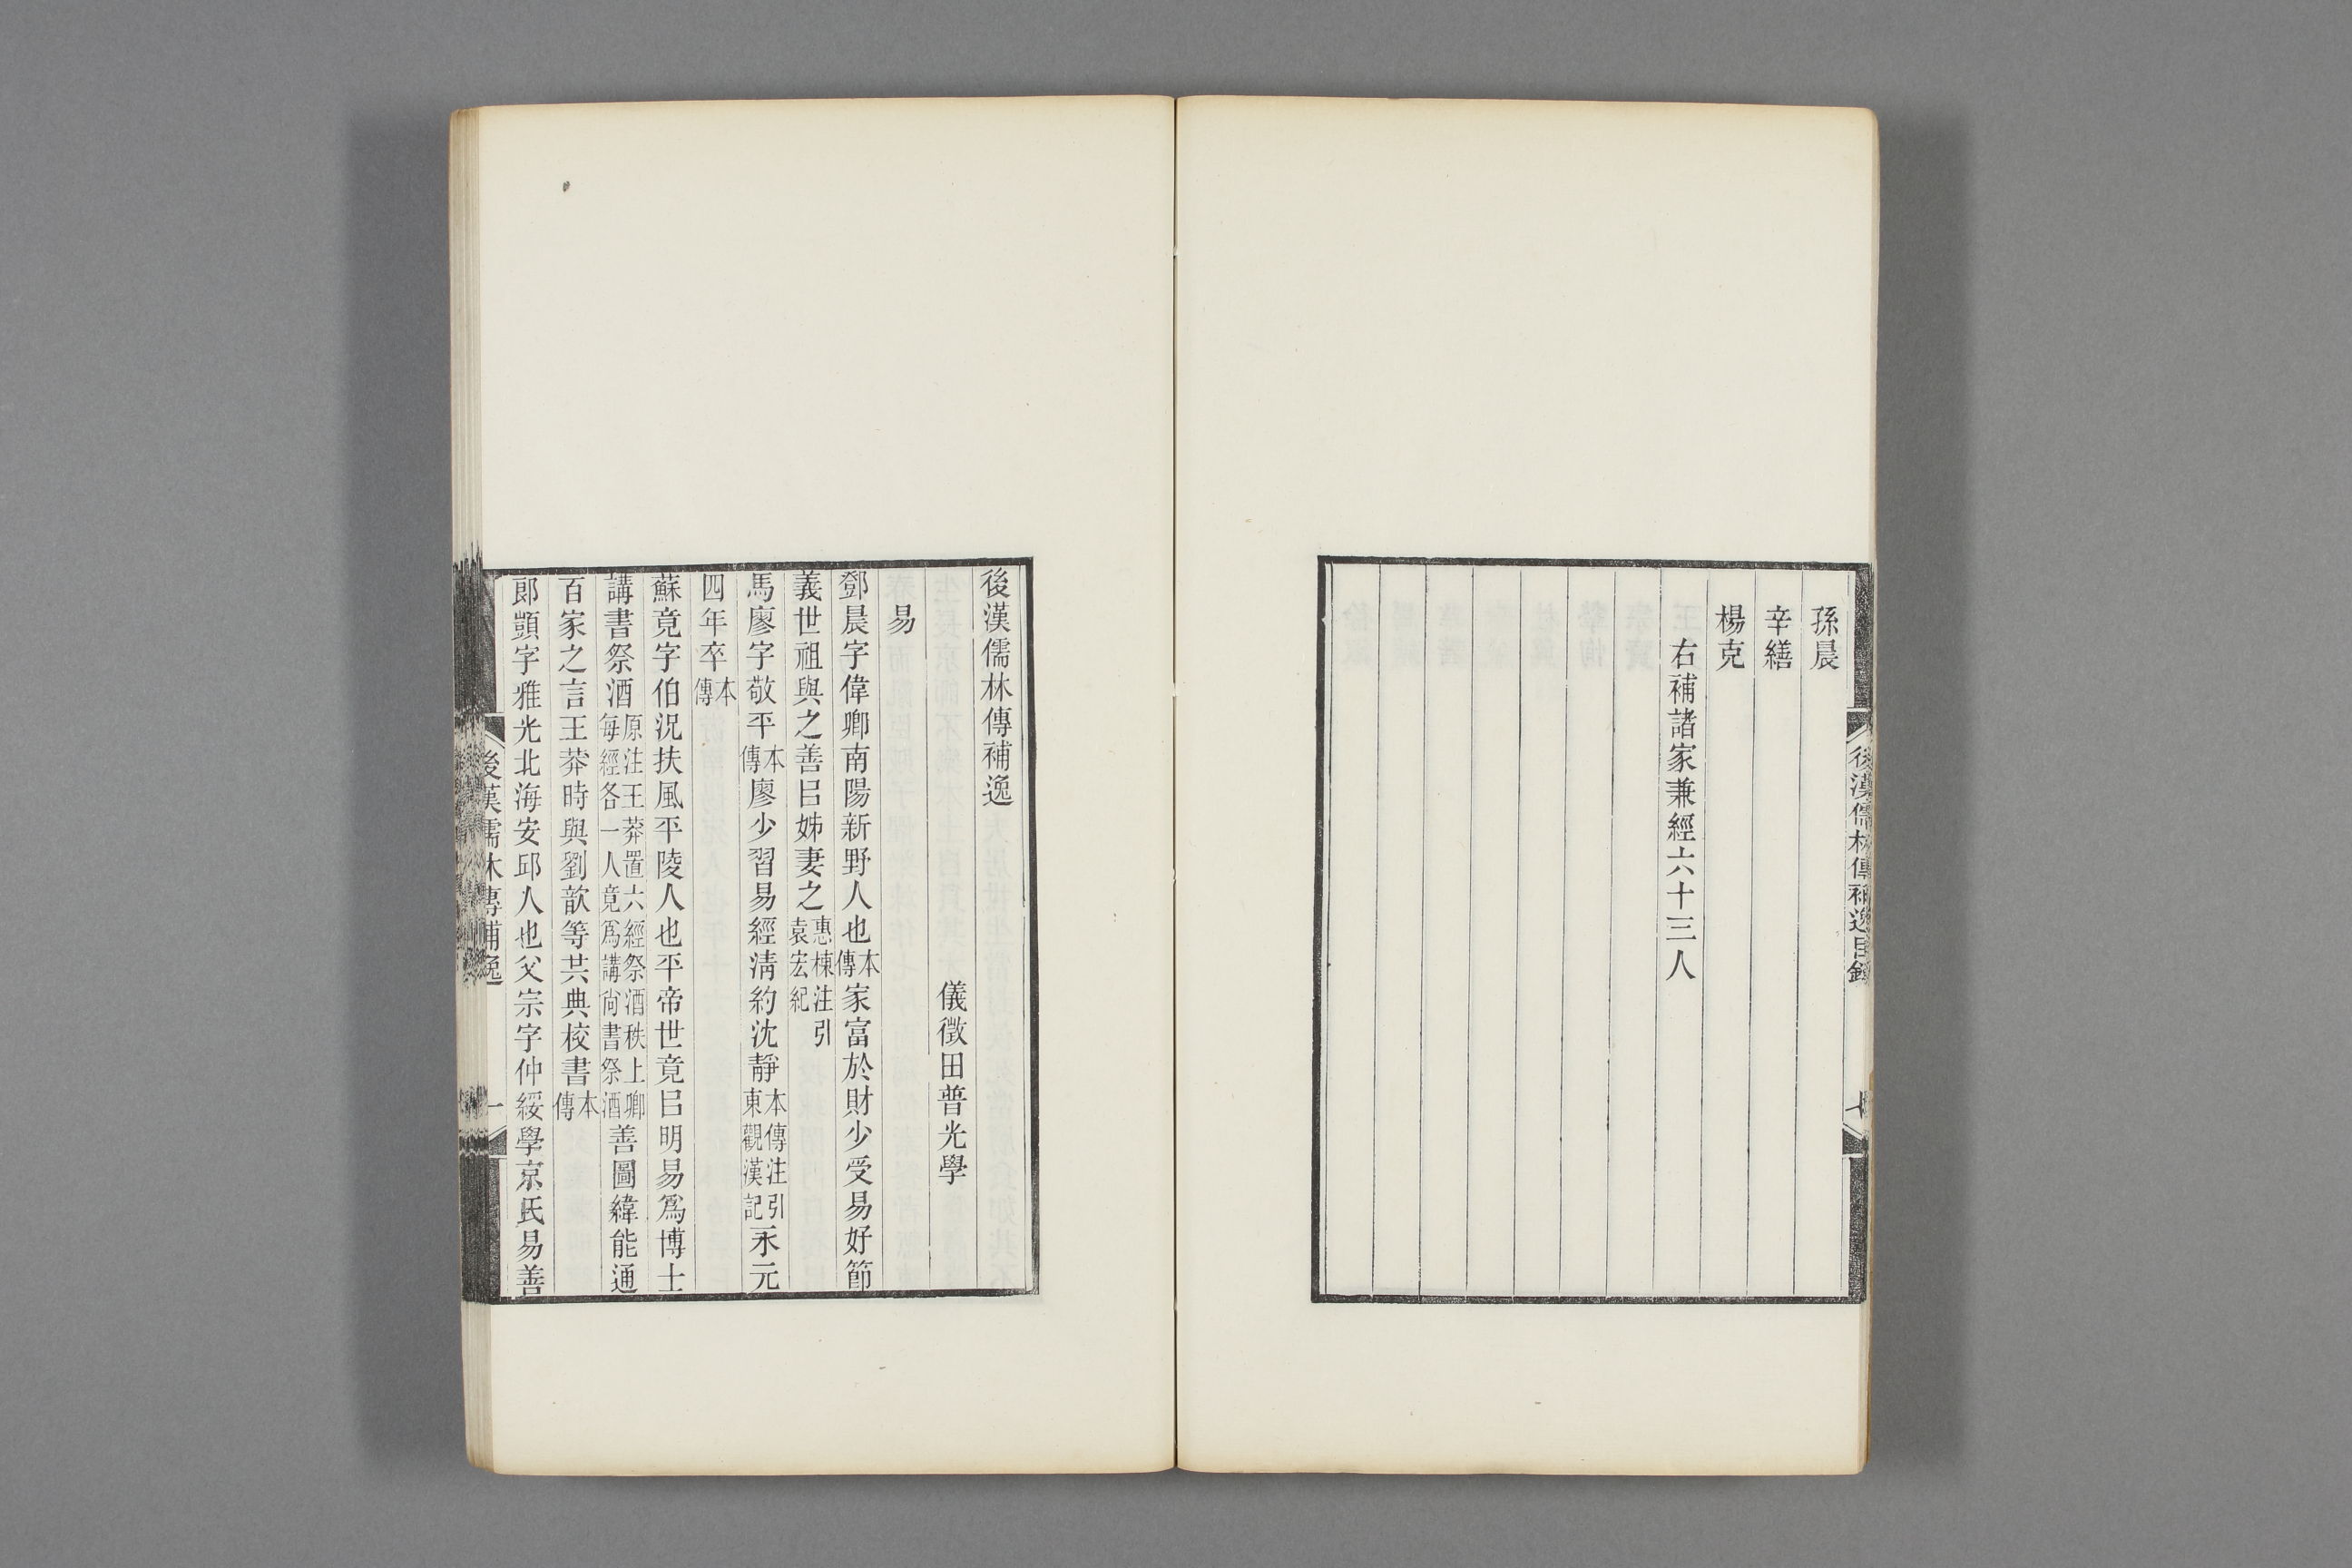 孫晨
辛繕
楊克
右補諸家兼經六十三人
後漢儒林傳補逸目錄
七
後漢儒林傳補逸
儀徵田普光學
易
鄧晨字偉卿南陽新野人也本傳家富於財少受易好節
義世祖與之善㠯姊妻之惠棟注引袁宏紀
馬廖字敬平本傳廖少習易經淸約沈靜本傳注引東觀漢記永元
四年卒本傳
蘇竟字伯況扶風平陵人也平帝世竟㠯明易爲博士
講書祭酒原注王莽置六經祭酒秩上卿每經各一人竟爲講尙書祭酒善圖緯能通
百家之言王莽時與劉歆等共典校書本傳
郎顗字雅光北海安邱人也父宗字仲綏學京氏易善
後漢儒林傳補逸
一